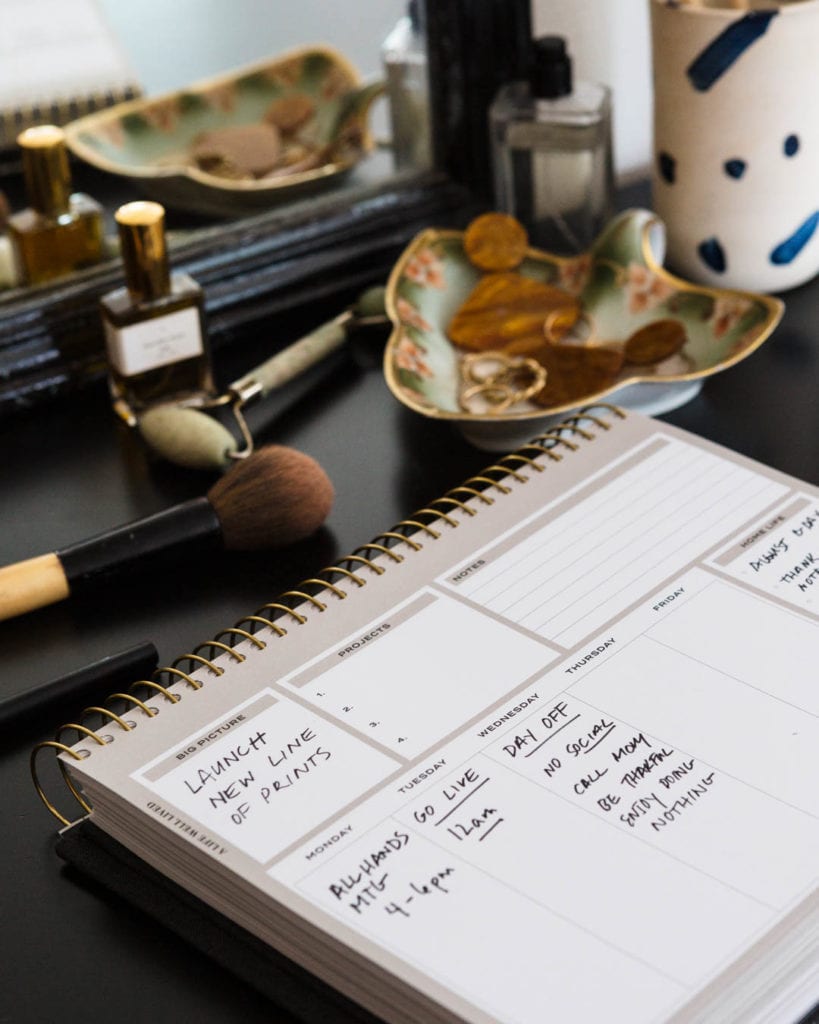 NOTES
HOME LIFE
THANK
PROJECTS
1.
2.
3.
4.
BIG PICTURE
LAUNCH
NEW LINE
OF PRINTS
A LIFE WELL LIVED
MONDAY
ALL HANDS
MTG
4-6pm
TUESDAY
GO LIVE
12am
WEDNESDAY
DAY OFF
NO SOCIAL
CALL MOM
BE THANKFUL
ENJOY DOING
NOTHING
THURSDAY
FRIDAY